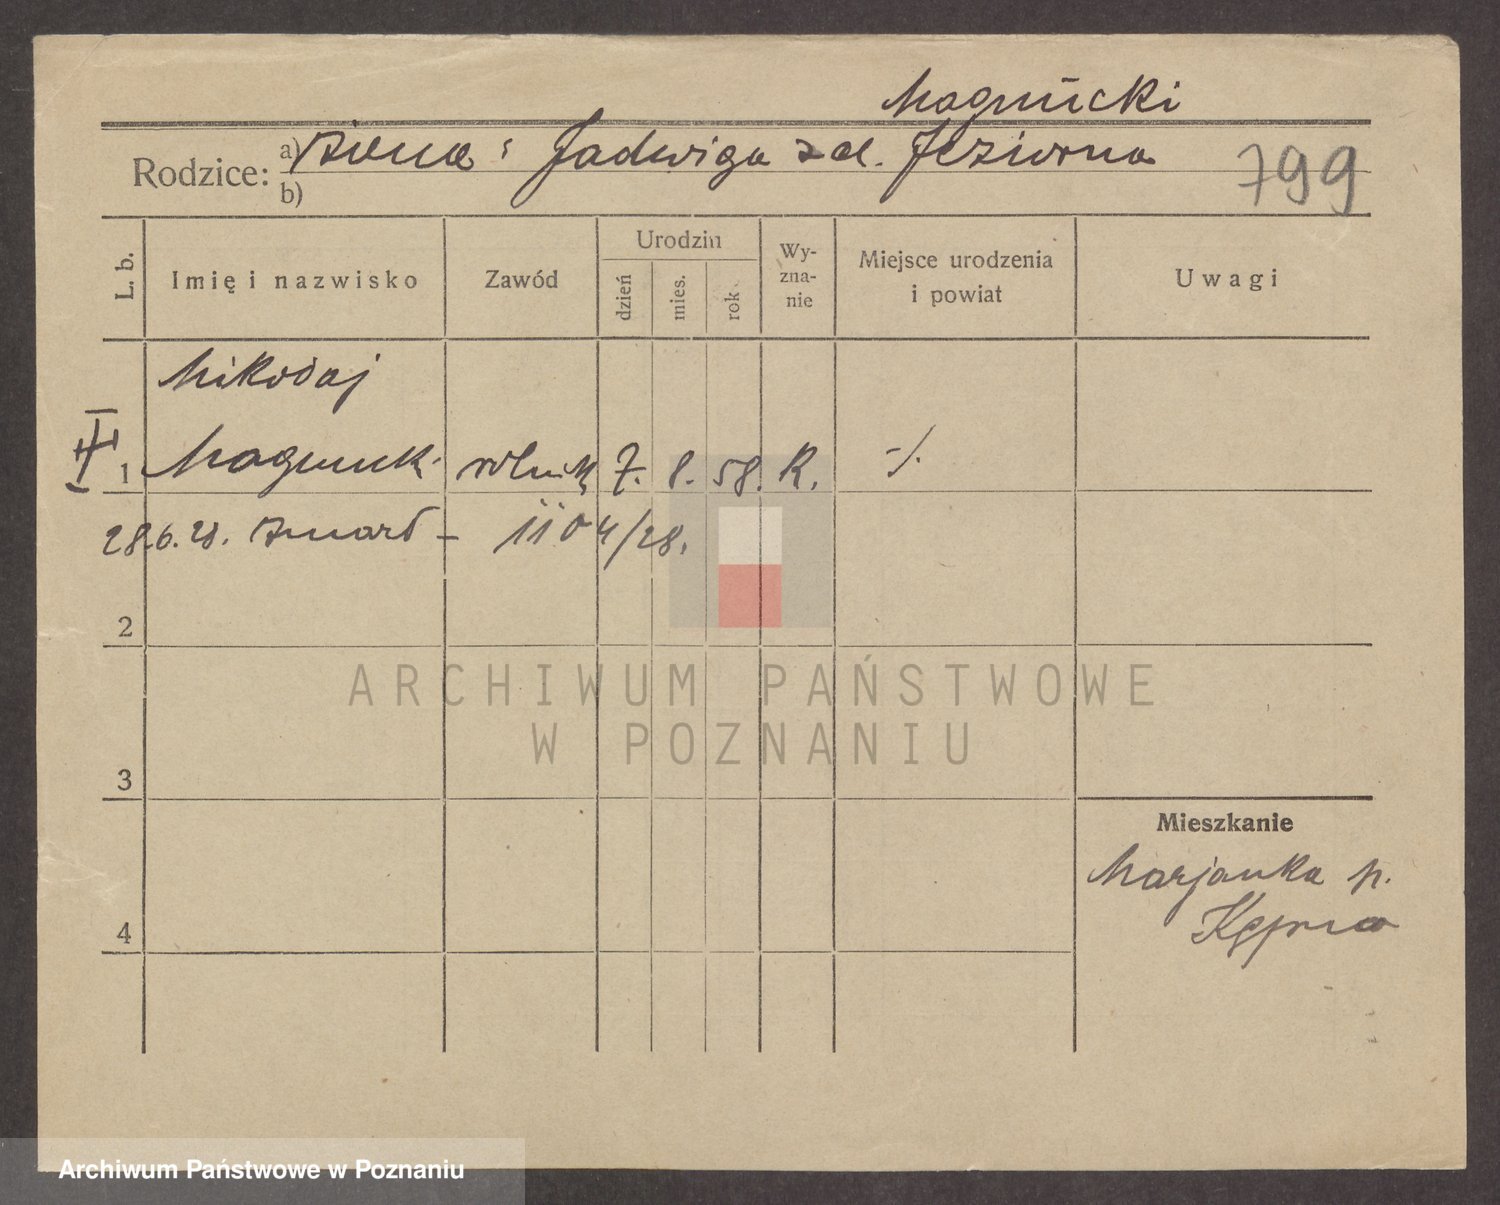 Magnucki
Rodzice: a) Żona: Jadwiga zd. Jeziorna
b)
799
L. b.
Imię i nazwisko
Zawód
Urodzin
dzień
mies.
rok
Wy-
zna-
nie
Miejsce urodzenia
i powiat
Uwagi
Mikołaj
III
1 rolnik 7. 8. 58. R. -/.
28.6.28. zmarł – 1104/28.
2
ARCHIWUM PAŃSTWOWE
W POZNANIU
3
Mieszkanie
Marjanka p.
4
Archiwum Państwowe w Poznaniu